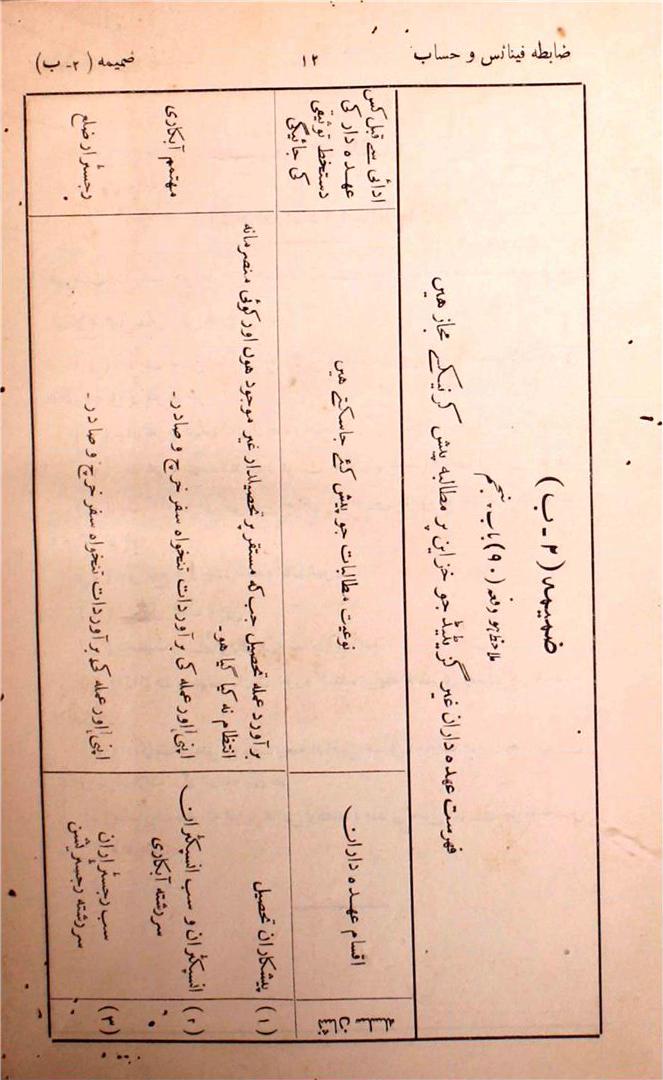 ضابطہ فینانس و حساب
۱۲
ضمیمہ (۲۔ب)
ضمیمہ (۲۔ب)
ملاحظہ ہو دفعہ (۹۰) باب پنجم
فہرست عہدہ داران غیر گزیٹیڈ جو خزاین پر مطالبہ پیش کرنیکے مجاز ہیں
نشان سلسلہ
اقسام عہدہ داران
نوعیت مطالبات جو پیش کئے جاسکتے ہیں
ادائی سے قبل کس
عہدہ دار کی
دستخط توثیقی
کی جائیگی
(۱)
پیشکاران تحصیل
برآورد عملہ تحصیل جب کہ مستقر پر تحصیلدار غیر موجود ہوں اور کوئی منصرمانہ
انتظام نہ کیا گیا ہو۔
(۲)
انسپکٹران و سب انسپکٹران
سررشتہ آبکاری
اپنی اور عملہ کی برآوردات تنخواہ سفر خرچ و صادر۔
مہتمم آبکاری
(۳)
سب رجسٹراران
سررشتہ رجسٹریشن
اپنی اور عملہ کی برآوردات تنخواہ سفر خرچ و صادر۔
رجسٹرار ضلع